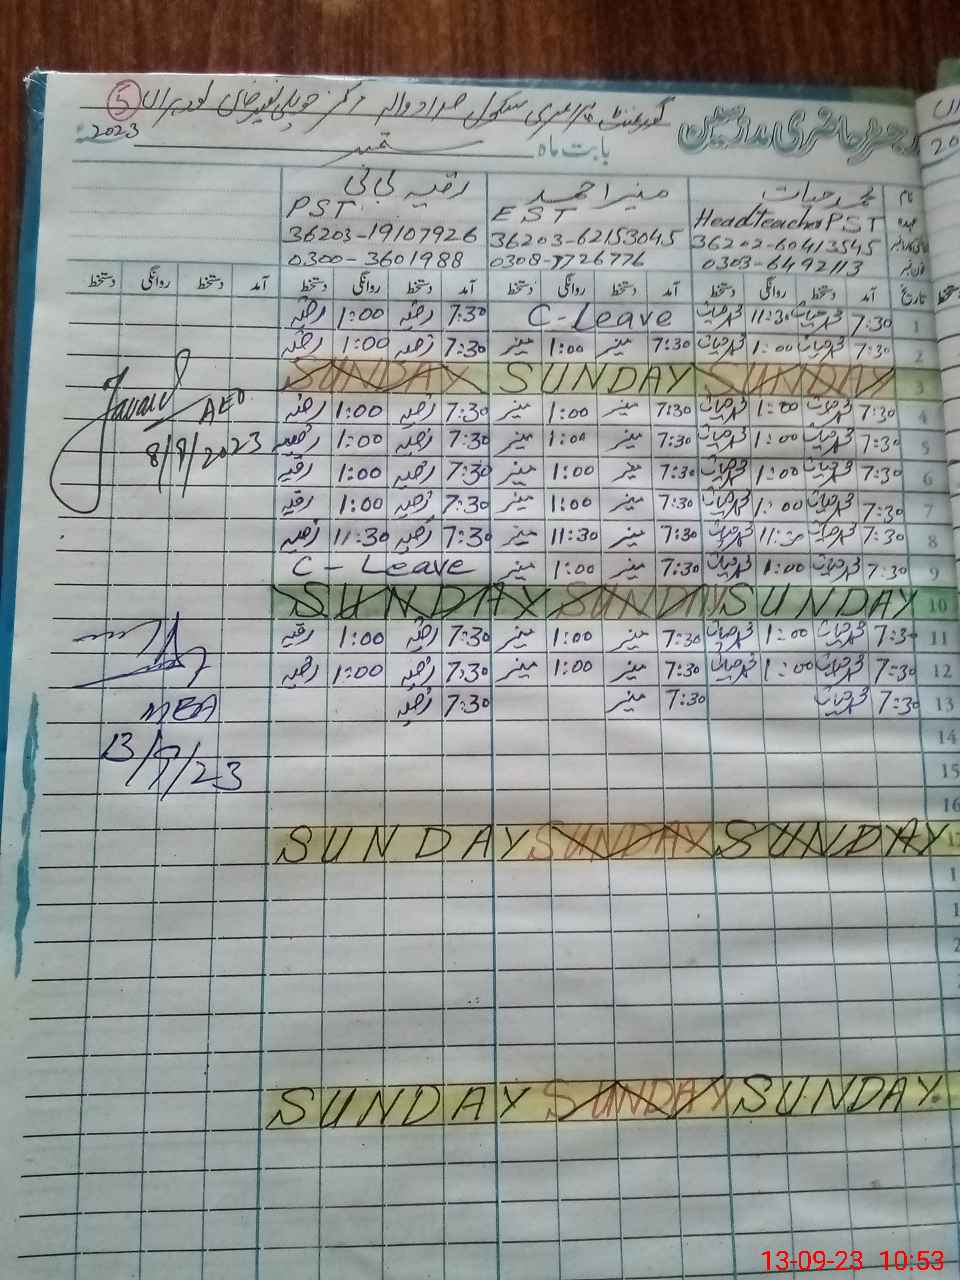 رجسٹر حاضری مدرسین
گورنمنٹ پرائمری سکول
بابت ماہ ستمبر 2023
نام محمد حیات منیر احمد رقیہ بی بی
عہدہ Headteacher PST EST PST
36202-60413545 36203-62153045 36203-19107926
0303-6492113 0308-7726776 0300-3601988
تاریخ آمد دستخط روانگی دستخط آمد دستخط روانگی دستخط آمد دستخط روانگی دستخط آمد دستخط روانگی دستخط
1 7:30 محمد حیات 11:30 محمد حیات C-Leave 7:30 رقیہ 1:00 رقیہ
2 7:30 محمد حیات 1:00 محمد حیات 7:30 منیر 1:00 منیر 7:30 رقیہ 1:00 رقیہ
3 SUNDAY SUNDAY SUNDAY
4 7:30 محمد حیات 1:00 محمد حیات 7:30 منیر 1:00 منیر 7:30 رقیہ 1:00 رقیہ
5 7:30 محمد حیات 1:00 محمد حیات 7:30 منیر 1:00 منیر 7:30 رقیہ 1:00 رقیہ
6 7:30 محمد حیات 1:00 محمد حیات 7:30 منیر 1:00 منیر 7:30 رقیہ 1:00 رقیہ
7 7:30 محمد حیات 1:00 محمد حیات 7:30 منیر 1:00 منیر 7:30 رقیہ 1:00 رقیہ
8 7:30 محمد حیات 11:30 محمد حیات 7:30 منیر 11:30 منیر 7:30 رقیہ 11:30 رقیہ
9 7:30 محمد حیات 1:00 محمد حیات 7:30 منیر 1:00 منیر C-Leave
10 SUNDAY SUNDAY SUNDAY
11 7:30 محمد حیات 1:00 محمد حیات 7:30 منیر 1:00 منیر 7:30 رقیہ 1:00 رقیہ
12 7:30 محمد حیات 1:00 محمد حیات 7:30 منیر 1:00 منیر 7:30 رقیہ 1:00 رقیہ
13 7:30 محمد حیات 7:30 منیر 7:30 رقیہ
14
15
16
SUNDAY SUNDAY SUNDAY
SUNDAY SUNDAY SUNDAY
AEO
8/9/2023
MEA
13/9/23
13-09-23 10:53